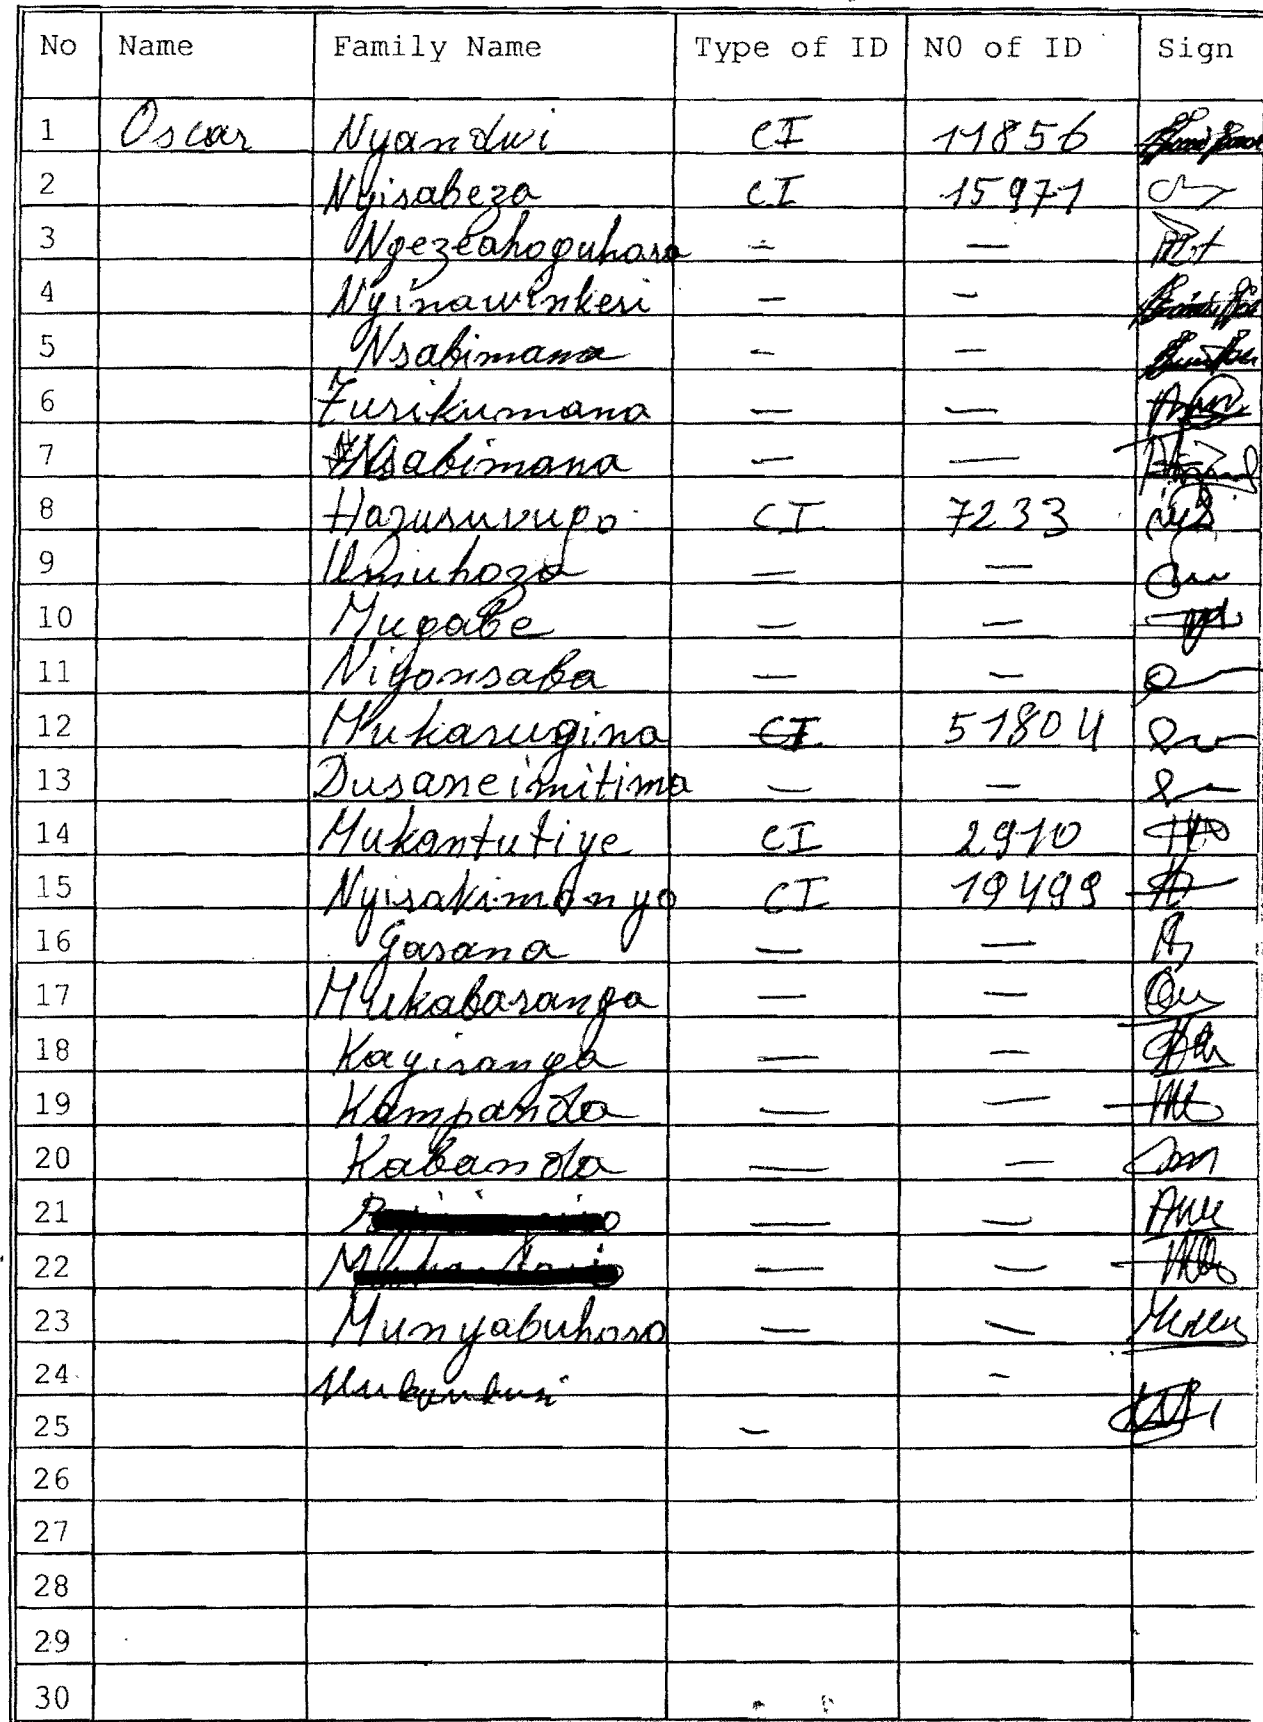 No Name Family Name Type of ID N0 of ID Sign
1 Oscar Nyandwi CI 11856
2 Nyisabeza CI 15971
3 Ngezeahoguhora — —
4 Nyinawinkesi — —
5 Nsabimana — —
6 Furikumana — —
7 Nsabimana — —
8 Hazusuvugo CI 7233
9 Umuhoza — —
10 Mugabe — —
11 Niyonsaba — —
12 Mukarugina CI 51804
13 Dusaneimitima — —
14 Mukantutiye CI 2910
15 Nyisakimonyo CI 19499
16 Gasana — —
17 Mukabaranga — —
18 Kayiranga — —
19 Kampanda — —
20 Kabanda — —
21 — —
22 — —
23 Munyabuhoro — —
24 —
25 —
26
27
28
29
30